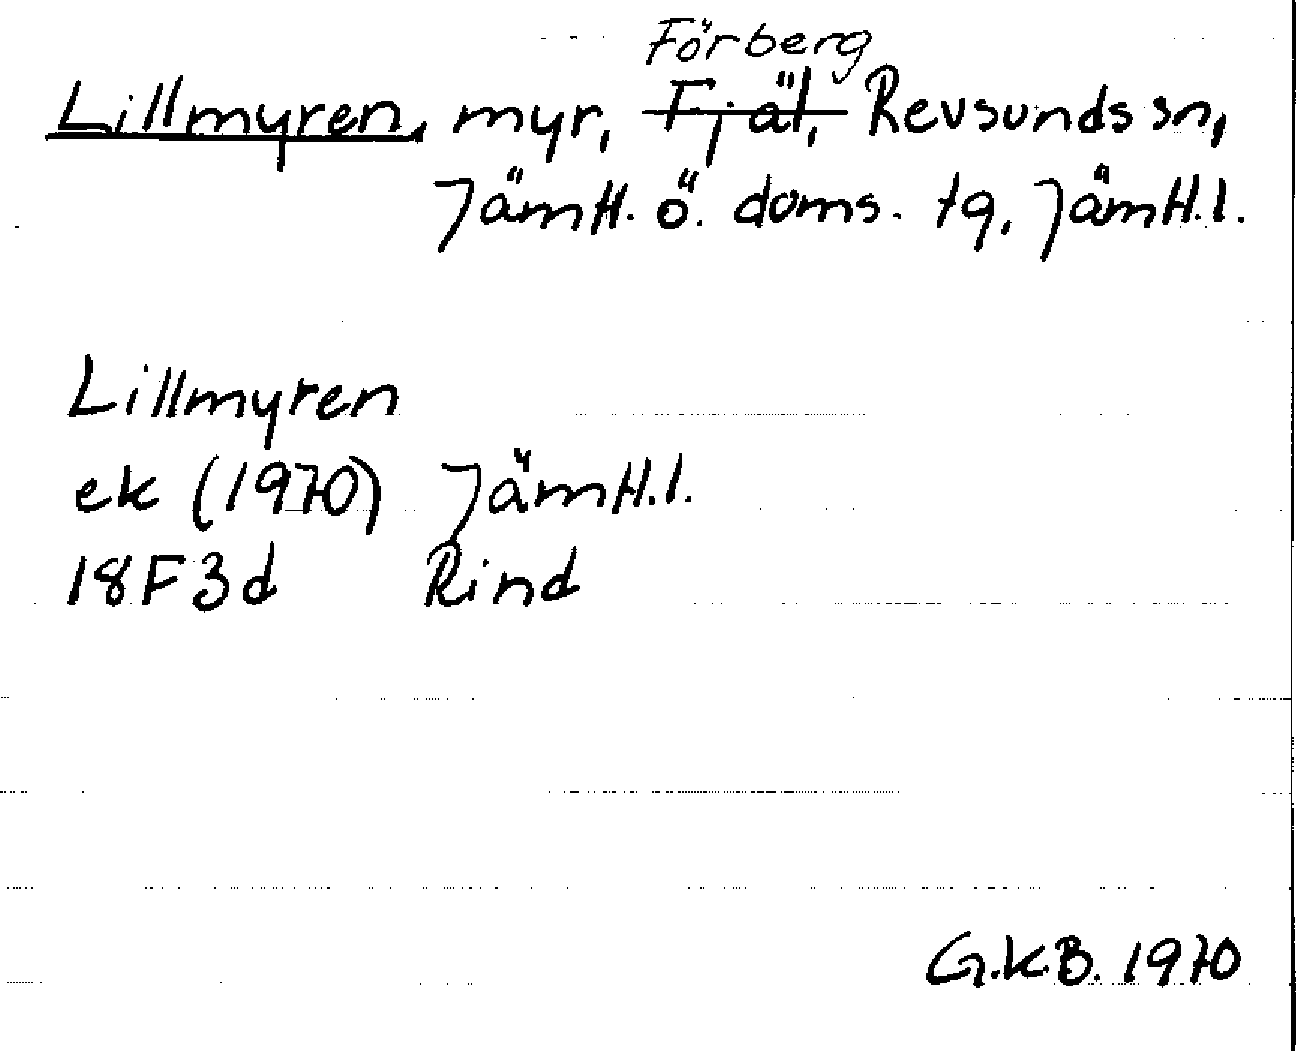 Förberg
Lillmyren, myr, Fjäl, Revsunds sn,
Jämtl. ö. doms. tg, Jämtl. l.
Lillmyren
ek (1970) Jämtl. l.
18F3d Rind
G.K.B. 1970